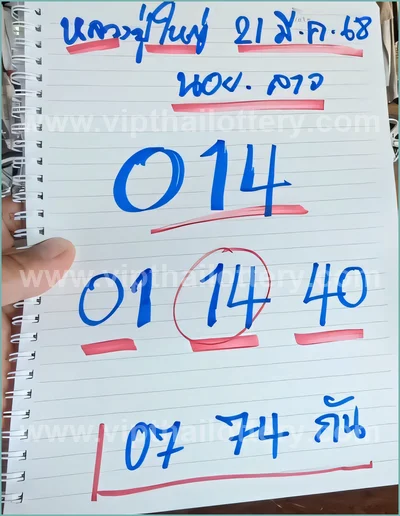 หลวงปู่ใหญ่ 21 มี.ค.68
นอย.ลาว
www.vipthailottery.com
014
www.vipthailottery.com
01 14 40
www.vipthailottery.com
07 74 กัน